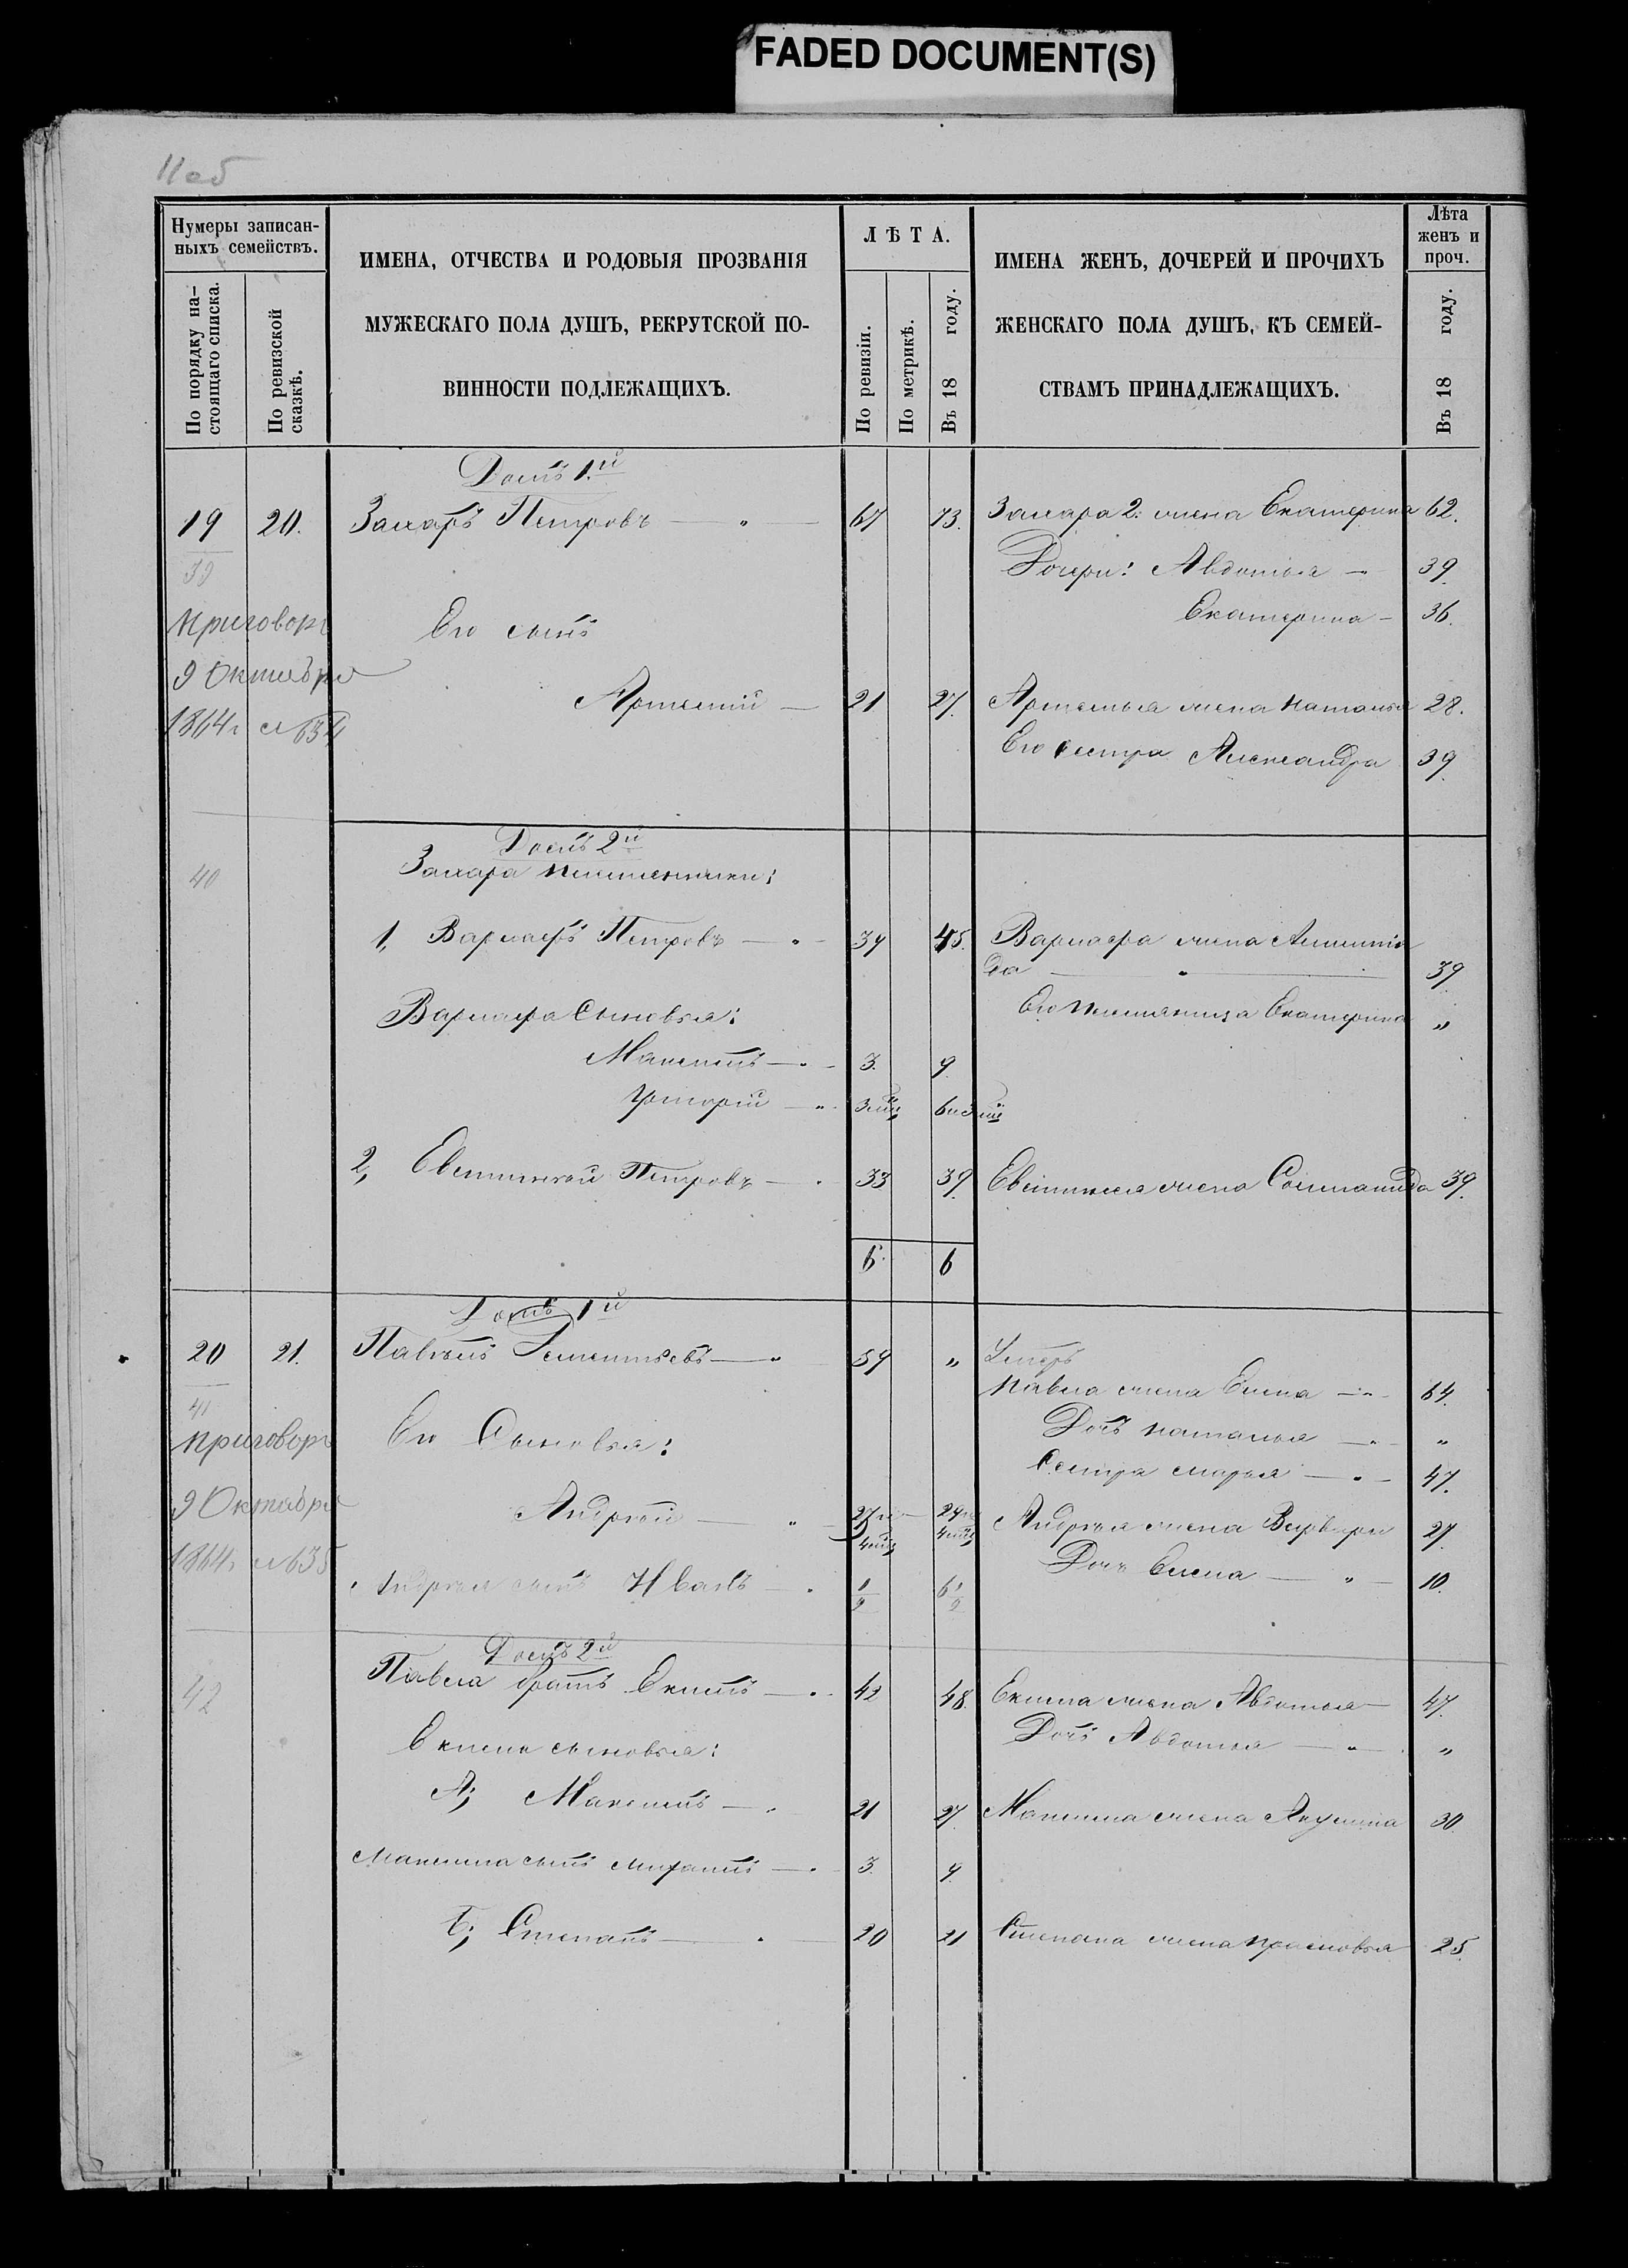 FADED DOCUMENT(S)
11об
Нумеры записан-
ныхъ семействъ.
По порядку на-
стоящаго списка.
По ревизской
сказкѣ.
ИМЕНА, ОТЧЕСТВА И РОДОВЫЯ ПРОЗВАНІЯ
МУЖЕСКАГО ПОЛА ДУШЪ, РЕКРУТСКОЙ ПО-
ВИННОСТИ ПОДЛЕЖАЩИХЪ.
ЛѢТА.
По ревизіи.
По метрикѣ.
Въ 18 году.
ИМЕНА ЖЕНЪ, ДОЧЕРЕЙ И ПРОЧИХЪ
ЖЕНСКАГО ПОЛА ДУШЪ, КЪ СЕМЕЙ-
СТВАМЪ ПРИНАДЛЕЖАЩИХЪ.
Лѣта
женъ и
проч.
Въ 18 году.
Домъ 1й
19 20. Захаръ Петровъ — " — 67 73. Захара 2: жена Екатерина 62.
39 Дочери: Авдотья — 39.
Приговоръ Его сынъ Екатерина — 36.
9 Октября
1864г №634 Артемій — 21 27. Артемья жена Наталья 28.
Его сестра Александра 39.
Домъ 2й
40 Захара племянники:
1, Варлаъ Петровъ — 39 45. Варлаа жена
да — 39.
Варлаа Сыновья: Его племянница Екатерина "
Максимъ — 3. 9.
Григорій —
2, Евстигней Петровъ — 33 39. Евстигнея жена Соломанида 39.
6. 6
Домъ 1й
20 21. Павелъ Дементьевъ — 59 " Умеръ
41 Павла жена Елена — 64.
Приговоръ Его Сыновья: Дочь Наталья — "
Сестра Марья — 47.
9 Октября Андрей — Андрея жена Варвара 27.
1864г №635 Дочь Елена — " — 10.
Андрея сынъ Иванъ — 1/2 6 1/2
Домъ 2й
42 Павла братъ Екимъ — 42 48. Екима жена Авдотья — 47.
Екима сыновья: Дочь Авдотья — "
А; Максимъ — 21 27. Максима жена Акулина 30.
Максима сынъ — 3. 9.
Б; Степанъ — 20 21 Степана жена Прасковья 25.